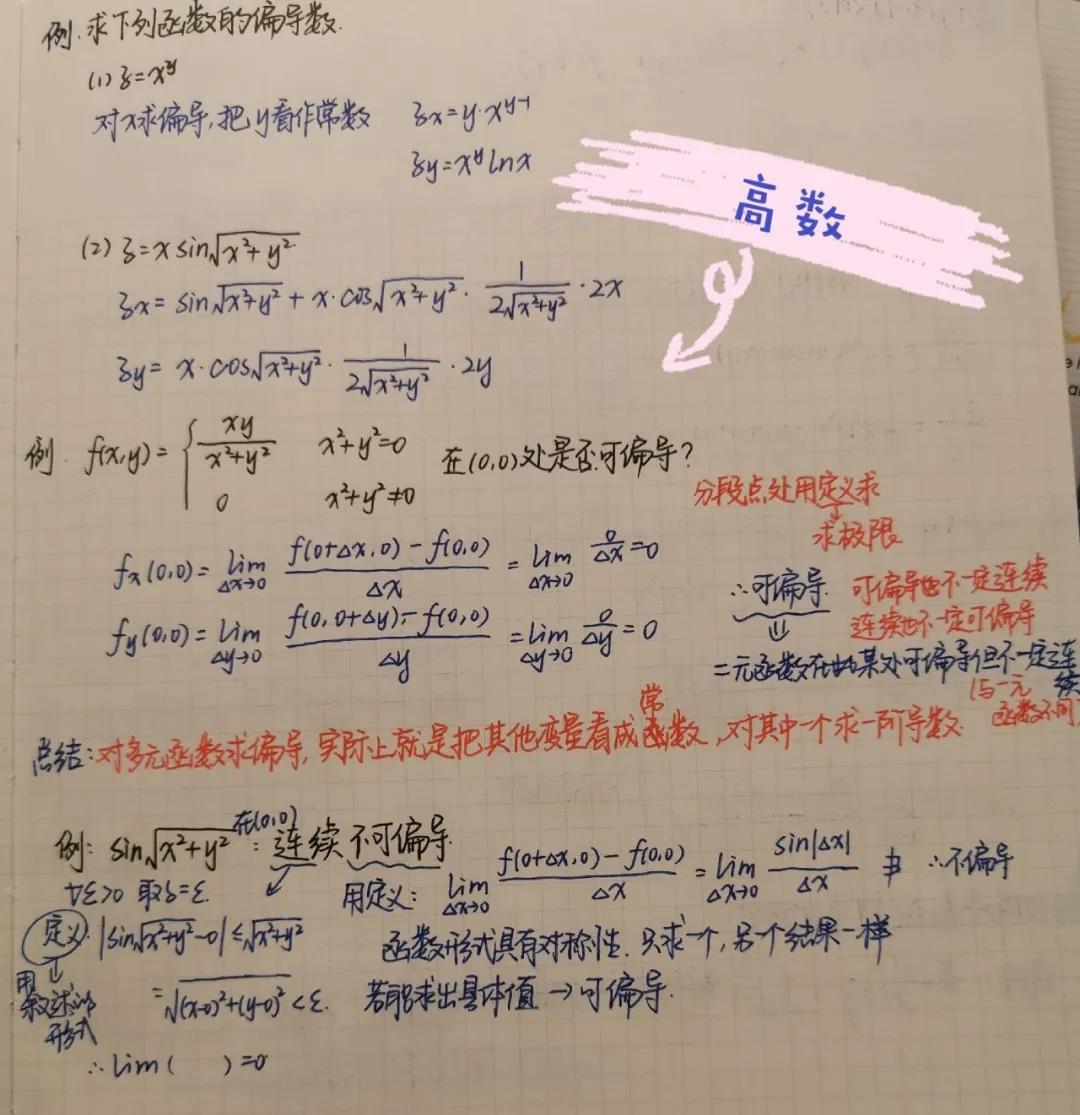 例.求下列函数的偏导数.
(1) z=x^y
对x求偏导,把y看作常数 zx=y·x^{y-1}
zy=x^y lnx
高数
(2) z=x sin√(x²+y²)
zx= sin√(x²+y²) + x·cos√(x²+y²) · 1/(2√(x²+y²)) ·2x
zy= x·cos√(x²+y²) · 1/(2√(x²+y²)) ·2y
例. f(x,y)= { xy/(x²+y²) x²+y²=0
0 x²+y²≠0
在(0,0)处是否可偏导?
分段点处用定义求
↓
求极限
fx(0,0)= lim Δx→0 (f(0+Δx,0)-f(0,0))/Δx = lim Δx→0 0/Δx =0
fy(0,0)= lim Δy→0 (f(0,0+Δy)-f(0,0))/Δy = lim Δy→0 0/Δy = 0
∴可偏导.
可偏导也不一定连续
连续也不一定可偏导
⇓
二元函数在某处可偏导但不一定连续
与一元
函数不同
总结:对多元函数求偏导,实际上就是把其他变量看成常数,对其中一个求一阶导数.
例: sin√(x²+y²) 在(0,0): 连续 不可偏导
∀ε>0 取δ=ε.
用定义: lim Δx→0 (f(0+Δx,0)-f(0,0))/Δx = lim Δx→0 sin|Δx|/Δx ∄ ∴不偏导
定义. |sin√(x²+y²)-0| ≤√(x²+y²)
函数形式具有对称性.只求一个,另个结果一样
↓
用
叙述的
形式
=√((x-0)²+(y-0)²) <ε.
若能求出具体值→可偏导.
∴lim( )=0